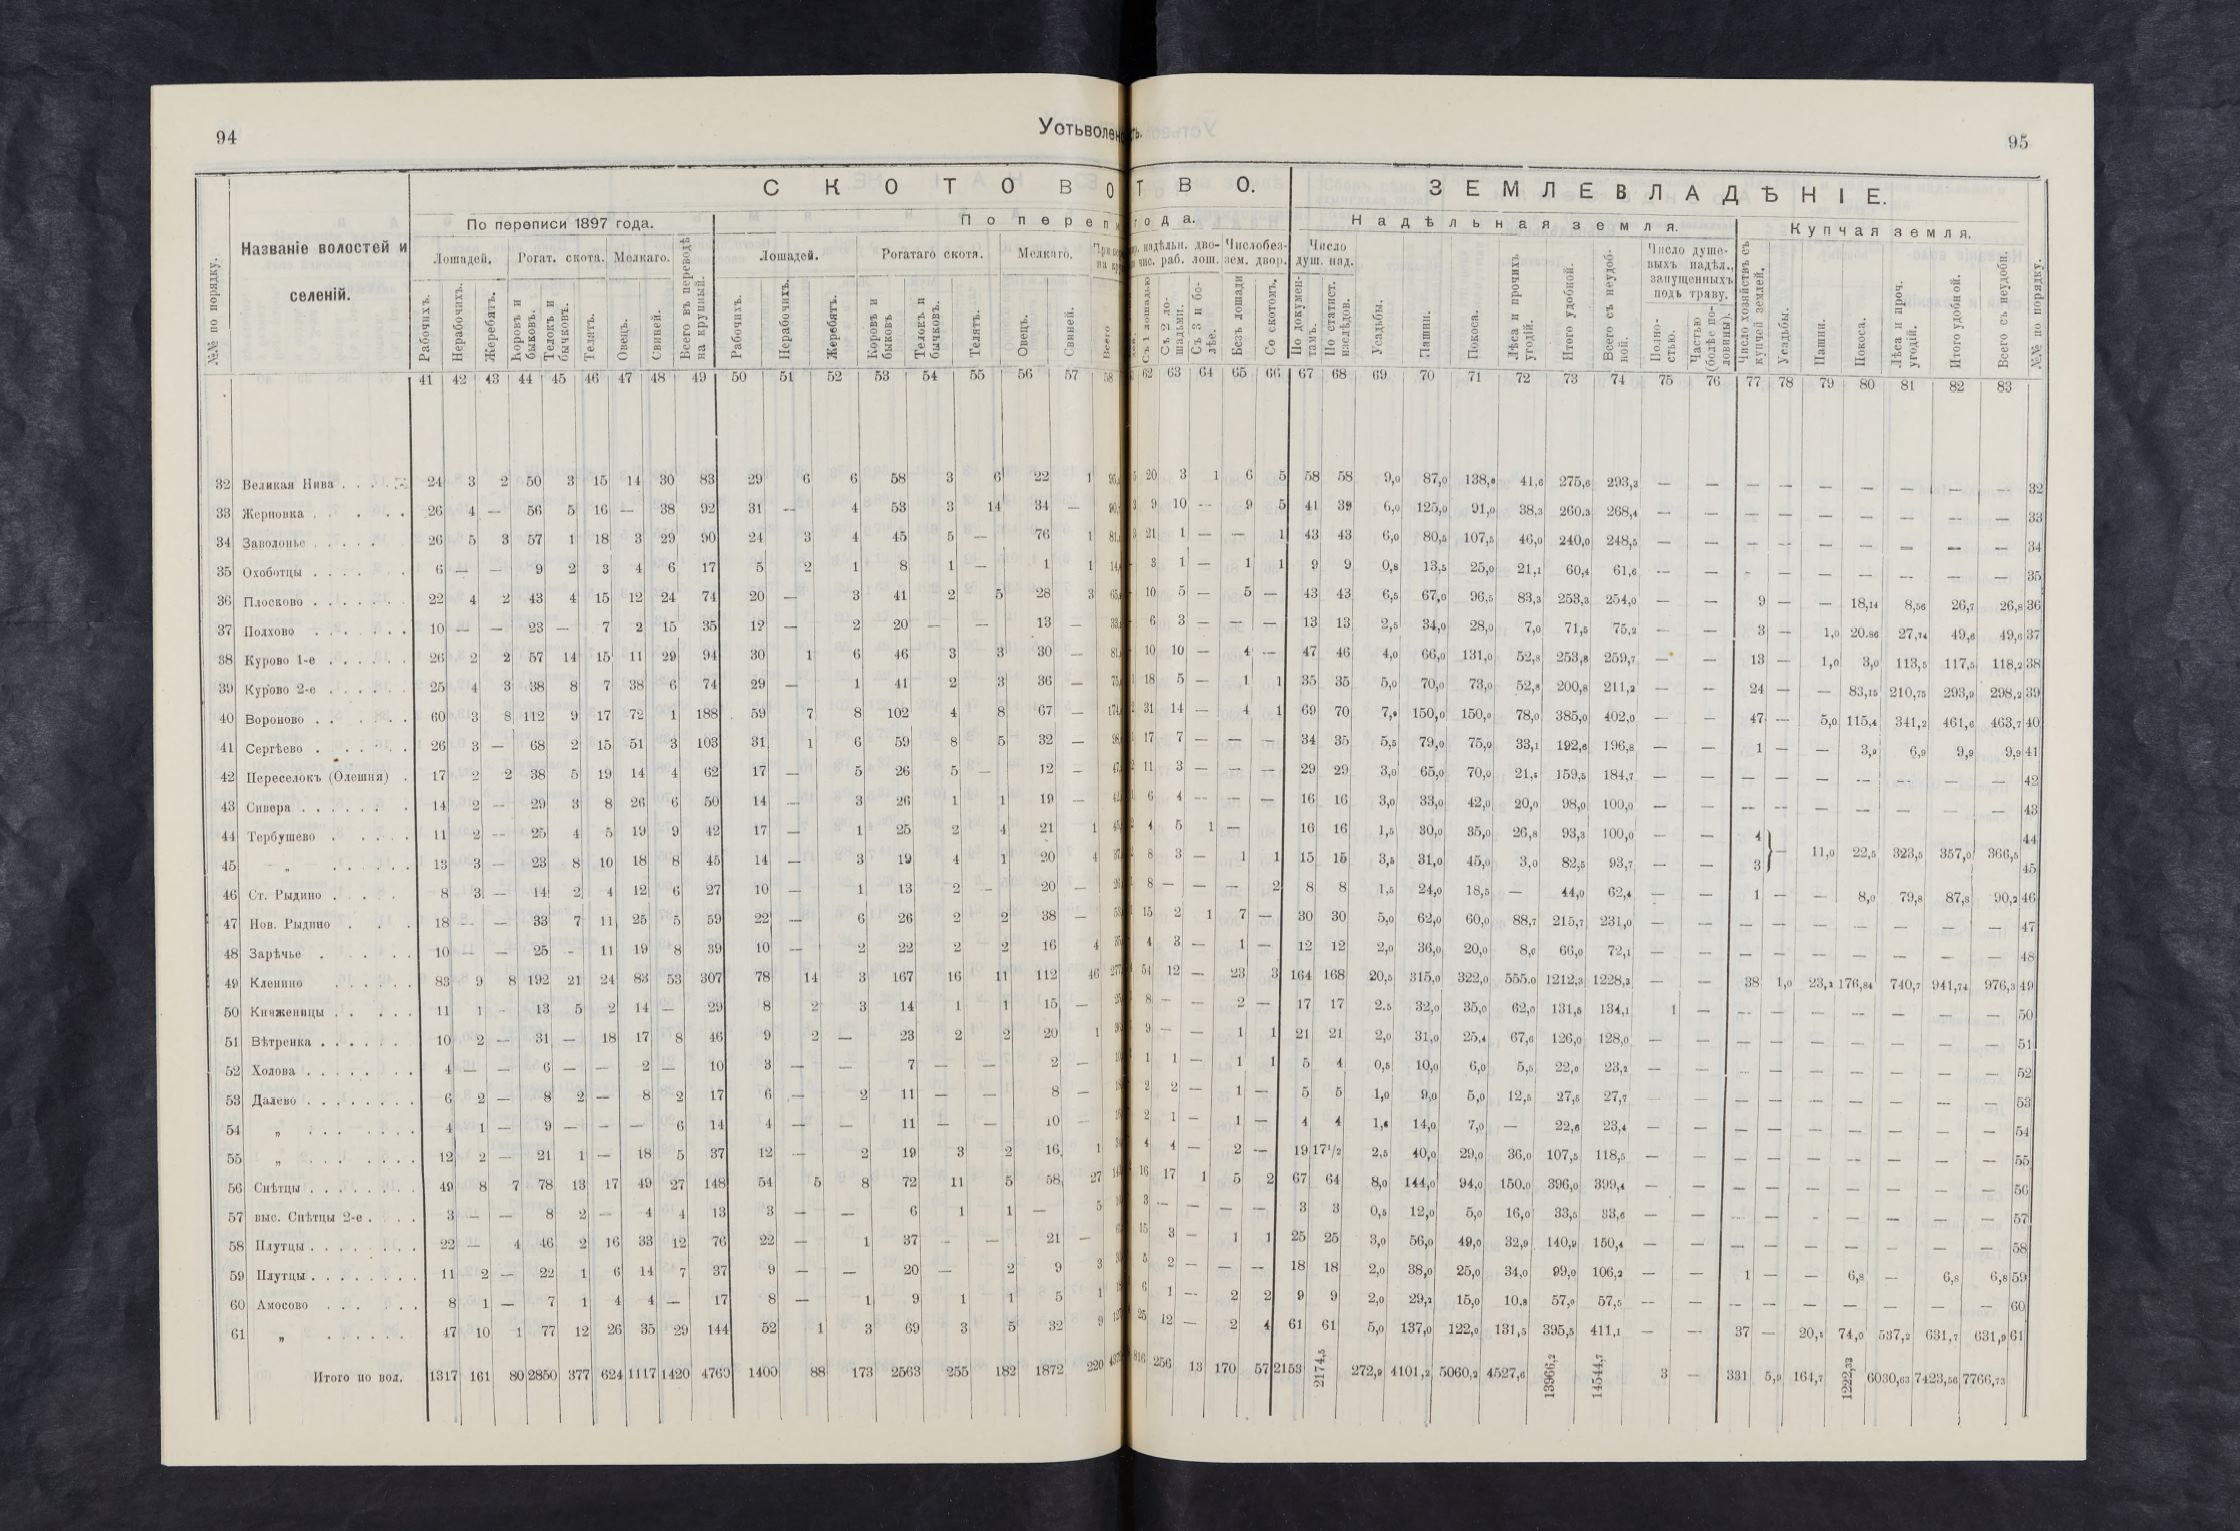 94
Устьволенс
ть.
95
С К О Т О В О Т В О.
З Е М Л Е В Л А Д Ѣ Н I Е.
По переписи 1897 года.
По перепи
года.
Надѣльная земля.
Купчая земля.
№№ по порядку.
Названiе волостей и селенiй.
Лошадей. Рогат. скота. Мелкаго. Всего въ переводѣ на крупный.
Лошадей. Рогатаго скота. Мелкаго.
Число душ. над.
Число душевыхъ надѣл., запущенныхъ подъ траву.
Рабочихъ. Нерабочихъ. Жеребятъ. Коровъ и быковъ. Телокъ и бычковъ. Телятъ. Овецъ. Свиней.
Рабочихъ. Нерабочихъ. Жеребятъ. Коровъ и быковъ Телокъ и бычковъ. Телятъ. Овецъ. Свиней. Всего
Съ 1 лошадью Съ 2 лошадьми. Съ 3 и болѣе. Безъ лошади Со скотомъ. По документамъ. По статист. изслѣдов. Усадьбы. Пашни. Покоса. Лѣса и прочихъ угодiй. Итого удобной. Всего съ неудобной. Полностью. Частью (болѣе половины). Число хозяйствъ съ купчей землей. Усадьбы. Пашни. Покоса. Лѣса и проч. угодiй. Итого удобной. Всего съ неудобн. №№ по порядку.
41 42 43 44 45 46 47 48 49 50 51 52 53 54 55 56 57 58 62 63 64 65 66 67 68 69 70 71 72 73 74 75 76 77 78 79 80 81 82 83
32 Великая Нива 24 3 2 50 3 15 14 30 83 29 6 6 58 3 6 22 1 20 3 1 6 5 58 58 9,0 87,0 138,0 41,6 275,6 293,3 — — — — — — — — — 32
33 Жерновка 26 4 — 56 5 16 — 38 92 31 — 4 53 3 14 34 — 9 10 — 9 5 41 39 6,0 125,0 91,0 38,3 260,3 268,4 — — — — — — — — — 33
34 Заволонье 26 5 3 57 1 18 3 29 90 24 3 4 45 5 — 76 1 21 1 — — 1 43 43 6,0 80,5 107,5 46,0 240,0 248,5 — — — — — — — — — 34
35 Охоботцы 6 — — 9 2 3 4 6 17 5 2 1 8 1 — 1 1 3 1 — 1 1 9 9 0,8 13,5 25,0 21,1 60,4 61,6 — — — — — — — — — 35
36 Плосково 22 4 2 43 4 15 12 24 74 20 — 3 41 2 5 28 3 10 5 — 5 — 43 43 6,5 67,0 96,5 83,3 253,3 254,0 — — 9 — — 18,14 8,56 26,7 26,8 36
37 Полхово 10 — — 23 — 7 2 15 35 12 — 2 20 — — 13 — 6 3 — — — 13 13 2,5 34,0 28,0 7,0 71,5 75,2 — — 3 — 1,0 20.86 27,74 49,6 49,6 37
38 Курово 1-е 26 2 2 57 14 15 11 29 94 30 1 6 46 3 3 30 — 10 10 — 4 — 47 46 4,0 66,0 131,0 52,8 253,8 259,7 — — 13 — 1,0 3,0 113,5 117,5 118,2 38
39 Курово 2-е 25 4 3 38 8 7 38 6 74 29 — 1 41 2 3 36 — 18 5 — 1 1 35 35 5,0 70,0 73,0 52,8 200,8 211,2 — — 24 — — 83,15 210,75 293,9 298,2 39
40 Вороново 60 3 8 112 9 17 72 1 188 59 7 8 102 4 8 67 — 31 14 — 4 1 69 70 7,0 150,0 150,0 78,0 385,0 402,0 — — 47 — 5,0 115,4 341,2 461,6 463,7 40
41 Сергѣево 26 3 — 68 2 15 51 3 103 31 1 6 59 8 5 32 — 17 7 — — — 34 35 5,5 79,0 75,0 33,1 192,6 196,8 — — 1 — — 3,0 6,9 9,9 9,9 41
42 Переселокъ (Олешня) 17 2 2 38 5 19 14 4 62 17 — 5 26 5 — 12 — 11 3 — — — 29 29 3,0 65,0 70,0 21,5 159,5 184,7 — — — — — — — — — 42
43 Сивера 14 2 — 29 3 8 26 6 50 14 — 3 26 1 1 19 — 6 4 — — — 16 16 3,0 33,0 42,0 20,0 98,0 100,0 — — — — — — — — — 43
44 Тербушево 11 2 — 25 4 5 19 9 42 17 — 1 25 2 4 21 1 4 5 1 — 16 16 1,5 30,0 35,0 26,8 93,3 100,0 — — 4 44
45 „ 13 3 — 23 8 10 18 8 45 14 — 3 19 4 1 20 4 8 3 — 1 1 15 15 3,5 31,0 45,0 3,0 82,5 93,7 — — 3 — 11,0 22,5 323,5 357,0 366,5 45
46 Ст. Рыдино 8 3 — 14 2 4 12 6 27 10 — 1 13 2 — 20 — 8 — — — 2 8 8 1,5 24,0 18,5 — 44,0 62,4 — — 1 — — 8,0 79,8 87,8 90,2 46
47 Нов. Рыдино 18 — — 33 7 11 25 5 59 22 — 6 26 2 2 38 — 15 2 1 7 — 30 30 5,0 62,0 60,0 88,7 215,7 231,0 — — — — — — — — — 47
48 Зарѣчье 10 — — 25 — 11 19 8 39 10 — 2 22 2 2 16 4 4 3 — 1 — 12 12 2,0 36,0 20,0 8,0 66,0 72,1 — — — — — — — — — 48
49 Кленино 83 9 8 192 21 24 83 53 307 78 14 3 167 16 11 112 46 54 12 — 23 3 164 168 20,5 315,0 322,0 555.0 1212,3 1228,3 — — 38 1,0 23,2 176,84 740,7 941,74 976,3 49
50 Княженицы 11 1 — 13 5 2 14 — 29 8 2 3 14 1 1 15 — 8 — — 2 — 17 17 2.5 32,0 35,0 62,0 131,5 134,1 1 — — — — — — — — 50
51 Вѣтренка 10 2 — 31 — 18 17 8 46 9 2 — 23 2 2 20 1 9 — — 1 1 21 21 2,0 31,0 25,4 67,6 126,0 128,0 — — — — — — — — — 51
52 Холова 4 — — 6 — — 2 — 10 3 — — 7 — — 2 — 1 1 — 1 1 5 4 0,5 10,0 6,0 5,5 22,0 23,2 — — — — — — — — — 52
53 Далево 6 2 — 8 2 — 8 2 17 6 — 2 11 — — 8 — 2 2 — 1 — 5 5 1,0 9,0 5,0 12,5 27,5 27,7 — — — — — — — — — 53
54 „ 4 1 — 9 — — — 6 14 4 — — 11 — — 10 — 2 1 — 1 — 4 4 1,6 14,0 7,0 — 22,6 23,4 — — — — — — — — — 54
55 „ 12 2 — 21 1 — 18 5 37 12 — 2 19 3 2 16 1 4 4 — 2 — 19 17½ 2,5 40,0 29,0 36,0 107,5 118,5 — — — — — — — — — 55
56 Снѣтцы 49 8 7 78 13 17 49 27 148 54 5 8 72 11 5 58 27 16 17 1 5 2 67 64 8,0 144,0 94,0 150,0 396,0 399,4 — — — — — — — — — 56
57 выс. Снѣтцы 2-е 3 — — 8 2 — 4 4 13 3 — — 6 1 1 — 5 3 — — — — 3 3 0,5 12,0 5,0 16,0 33,5 33,6 — — — — — — — — — 57
58 Плутцы 22 — 4 46 2 16 33 12 76 22 — 1 37 — — 21 — 15 3 — 1 1 25 25 3,0 56,0 49,0 32,9 140,9 150,4 — — — — — — — — — 58
59 Плутцы 11 2 — 22 1 6 14 7 37 9 — — 20 — 2 9 3 5 2 — — — 18 18 2,0 38,0 25,0 34,0 99,0 106,2 — — 1 — — 6,8 — 6,8 6,8 59
60 Амосово 8 1 — 7 1 4 4 — 17 8 — 1 9 1 1 5 1 6 1 — 2 2 9 9 2,0 29,2 15,0 10.8 57,0 57,5 — — — — — — — — — 60
61 „ 47 10 1 77 12 26 35 29 144 52 1 3 69 3 5 32 9 25 12 — 2 4 61 61 5,0 137,0 122,0 131,5 395,5 411,1 — — 37 — 20,5 74,0 537,2 631,7 631,9 61
Итого по вол. 1317 161 80 2850 377 624 1117 1420 4760 1400 88 173 2563 255 182 1872 220 816 256 13 170 57 2153 2174,5 272,9 4101,2 5060,2 4527,6 13966,2 14544,7 3 — 331 5,9 164,7 1222,33 6030,63 7423,56 7766,73